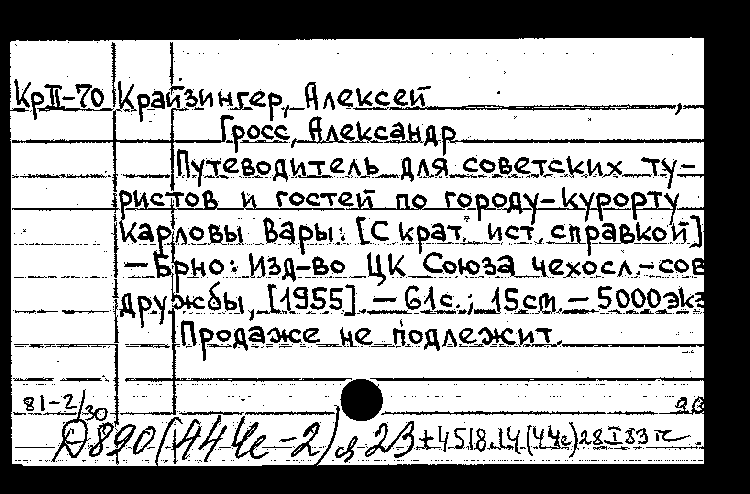 КрII-70 Крайзингер, Алексей ,
Гросс, Александр
Путеводитель для советских ту-
ристов и гостей по городу-курорту
Карловы Вары: [С крат. ист. справкой]
— Брно: Изд-во ЦК Союза чехосл.-сов
дружбы, [1955]. — 61с.; 15cm. — 5000экз
Продаже не подлежит.
81-2/30
Д890(44Че-2)я23 + 4518.14(44че)